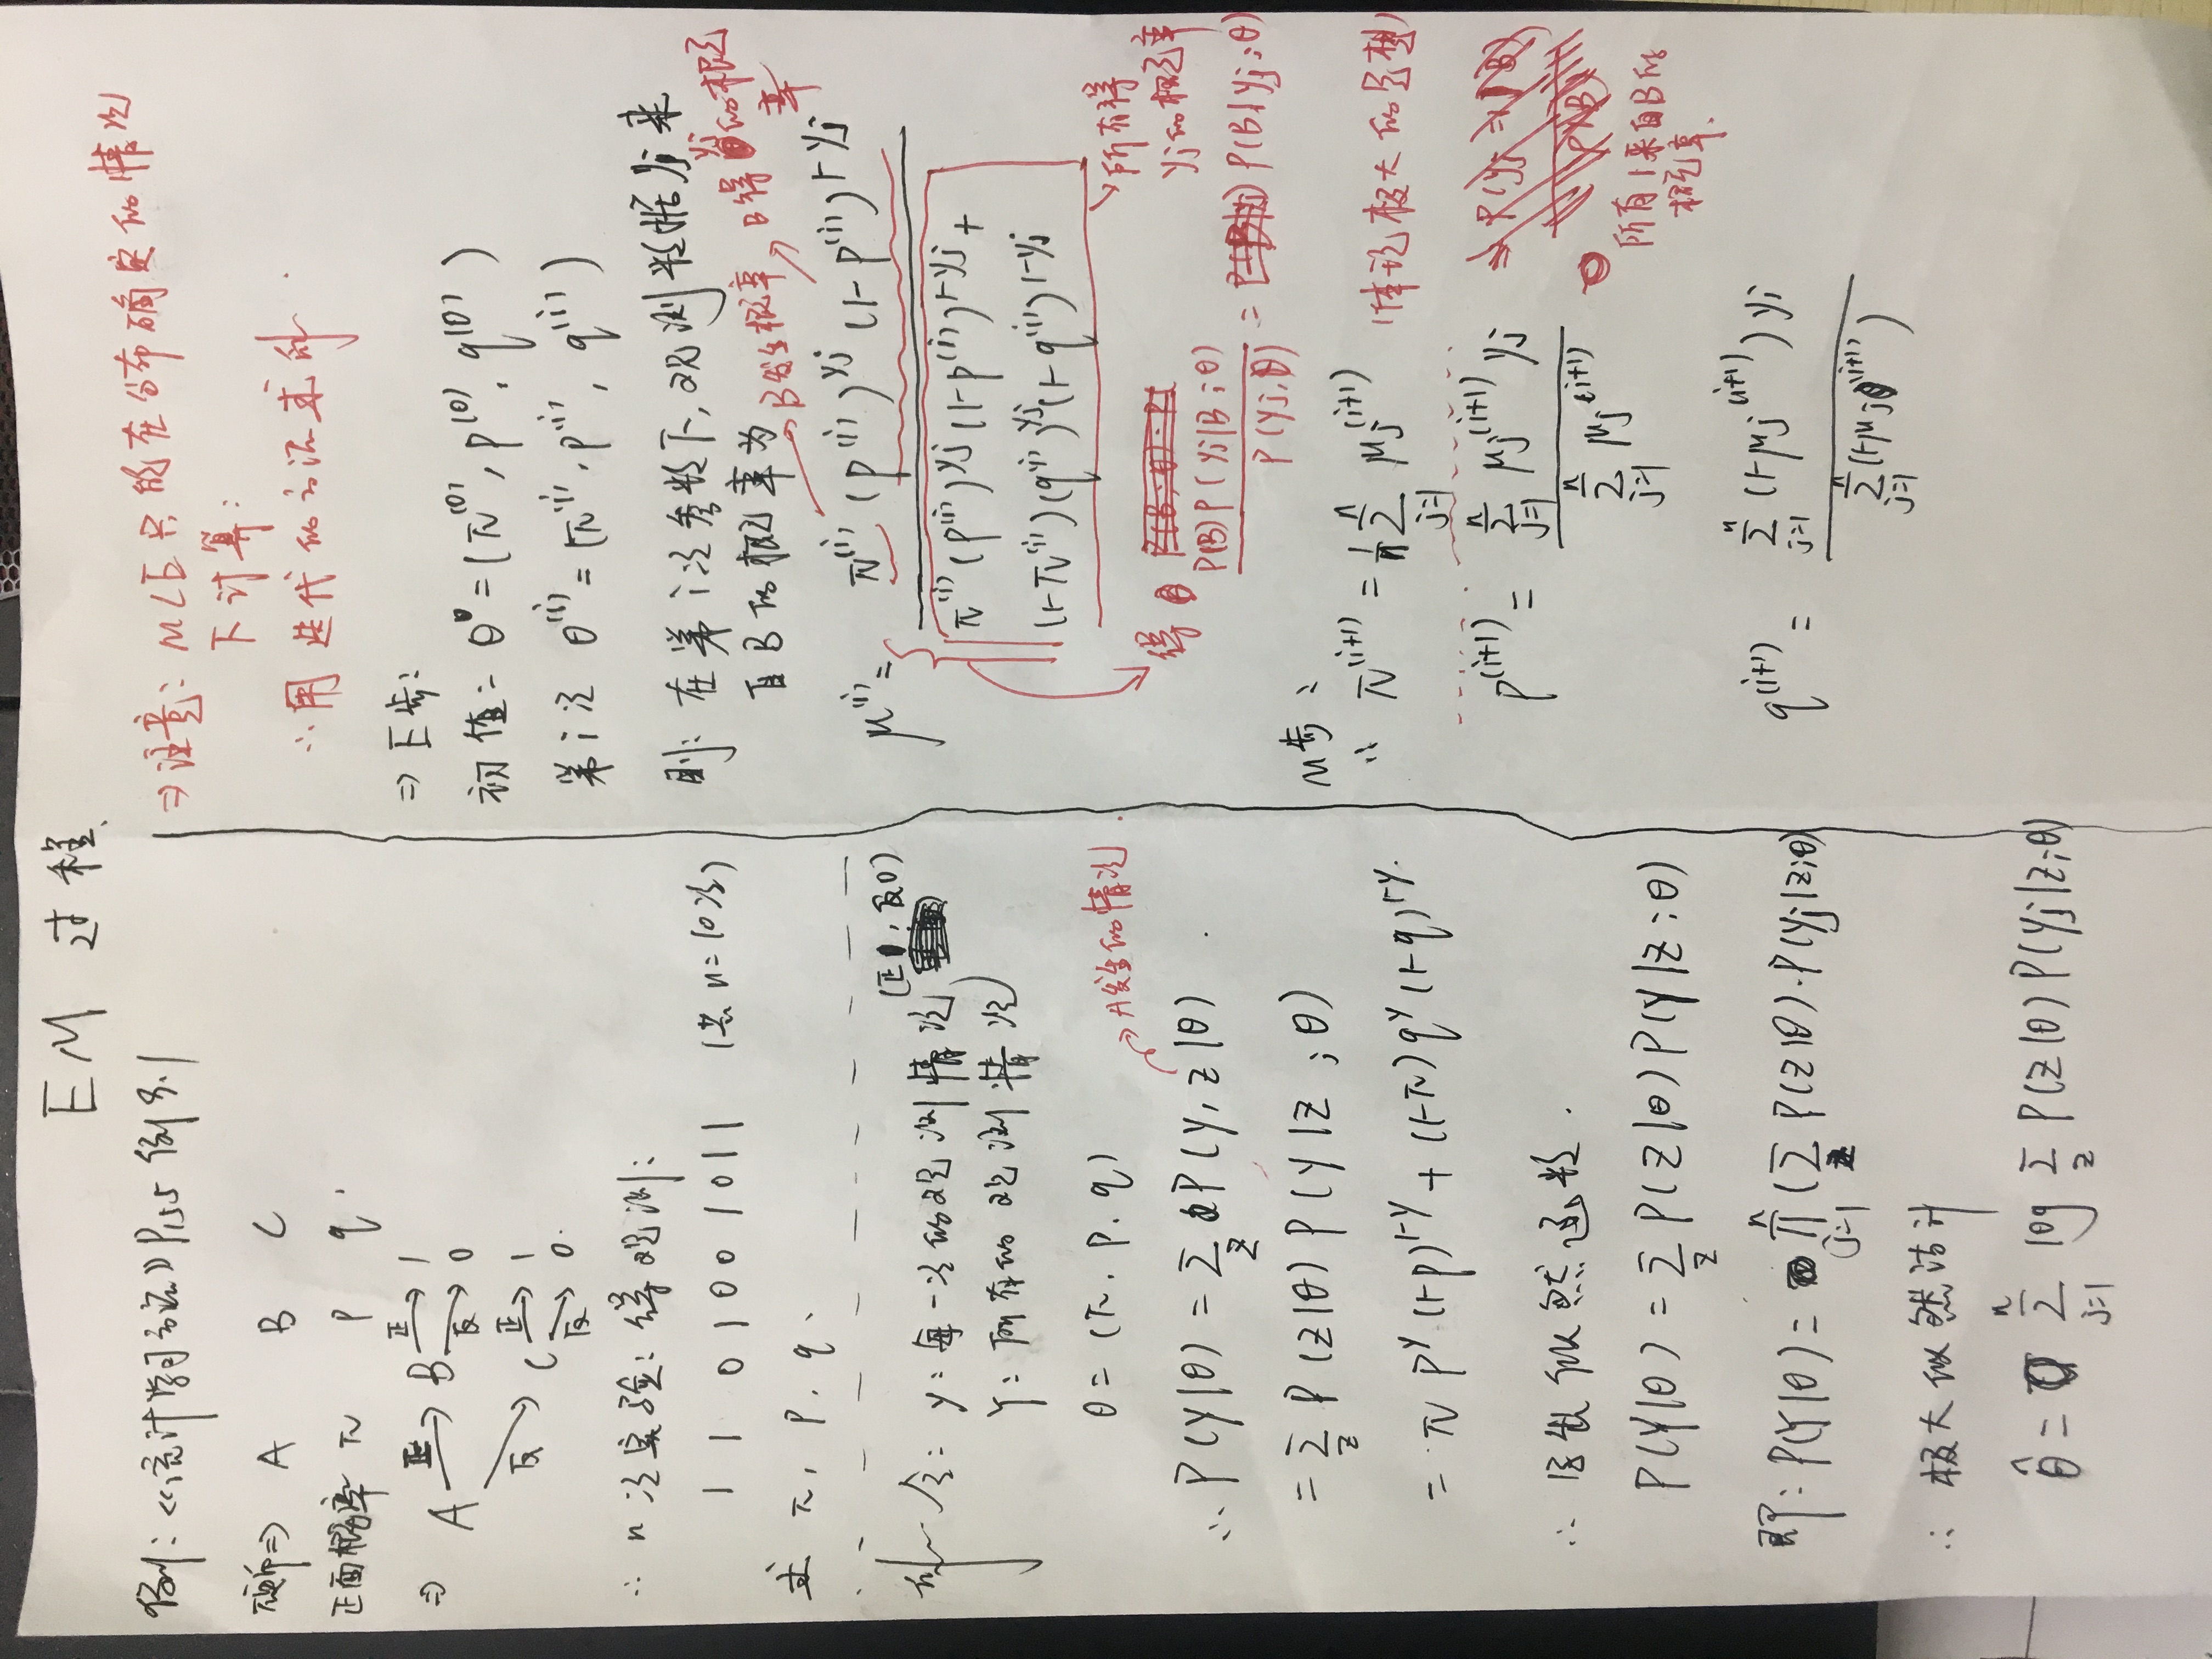 EM 过程
例:《统计学习方法》P155 例9.1
硬币⇒ A B C
正面概率 π p q.
⇒ A 正→ B 正→ 1
反→ 0
反→ C 正→ 1
反→ 0.
∴ n次实验:得观测:
1 1 0 1 0 0 1 0 1 1 (共n=10次)
求 π, p, q.
解 令: y:每一次的观测情况 (正1,反0)
Y:所有的观测情况
θ = (π, p, q)
→A发生的情况
∴ P(y|θ) = Σ_z P(y, z|θ)
= Σ_z P(z|θ) P(y|z;θ)
= π p^y (1-p)^{1-y} + (1-π) q^y (1-q)^{1-y}.
∴ 似然函数.
P(Y|θ) = Σ_z P(Z|θ) P(Y|Z;θ)
即: P(Y|θ) = Π_{j=1}^{n} (Σ_z P(z|θ)·P(yj|z;θ)
∴ 极大似然估计
θ̂ = Σ_{j=1}^{n} log Σ_z P(z|θ) P(yj|z;θ)
⇒注意: MLE只能在分布确定的情况
下计算:
∴用迭代的方法求解.
⇒ E步:
初值: θ⁰ = (π^{(0)}, p^{(0)}, q^{(0)})
第i次 θ^{(i)} = (π^{(i)}, p^{(i)}, q^{(i)})
则: 在第i次参数下,观测数据yj来
自B的概率为
→B发生概率
→B得yj的概率
μ^{(i)} = π^{(i)} (p^{(i)})^{yj} (1-p^{(i)})^{1-yj}
π^{(i)} (p^{(i)})^{yj} (1-p^{(i)})^{1-yj} +
(1-π^{(i)}) (q^{(i)})^{yj} (1-q^{(i)})^{1-yj}
→所有得
yj的概率
得 P(B)P(yj|B;θ) / P(yj,θ) = P(B|yj;θ)
M步:
∴ π^{(i+1)} = 1/n Σ_{j=1}^{n} μj^{(i+1)} (体现极大的思想)
p^{(i+1)} = Σ_{j=1}^{n} μj^{(i+1)} yj / Σ_{j=1}^{n} μj^{(i+1)}
所有1来自B的
概率.
q^{(i+1)} = Σ_{j=1}^{n} (1-μj^{(i+1)}) yj / Σ_{j=1}^{n} (1-μj^{(i+1)})